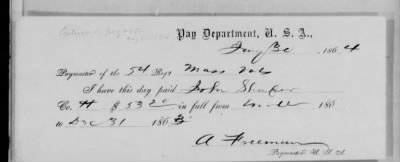 Pay Department, U. S. A.,
Jany 30 1864
Paymaster of the 54 Regt Mass Vols
I have this day paid John Shafer
Co. H $ 53 20 in full from 186
to Dec 31 1863
A Freeman
Paymaster U. S. A